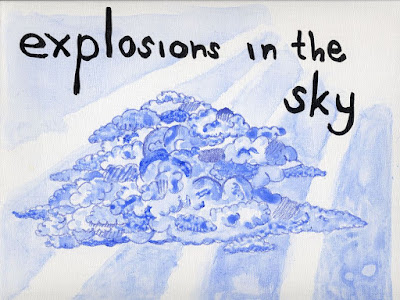 explosions in the
sky